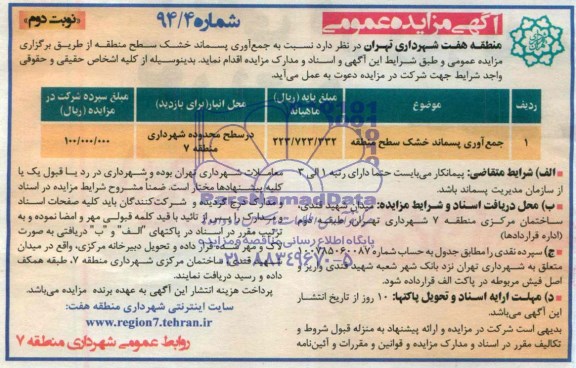 آگهی مزایده عمومی
شماره ۹۴/۴
«نوبت دوم»
منطقه هفت شهرداری تهران در نظر دارد نسبت به جمع‌آوری پسماند خشک سطح منطقه از طریق برگزاری
مزایده عمومی و طبق شرایط این آگهی و اسناد و مدارک مزایده اقدام نماید. بدینوسیله از کلیه اشخاص حقیقی و حقوقی
واجد شرایط جهت شرکت در مزایده دعوت به عمل می‌آید.
ردیف موضوع مبلغ پایه (ریال) ماهیانه محل انبار(برای بازدید) مبلغ سپرده شرکت در مزایده (ریال)
۱ جمع‌آوری پسماند خشک سطح منطقه ۲۲۳/۷۲۳/۲۳۲ درسطح محدوده شهرداری منطقه ۷ ۱۰۰/۰۰۰/۰۰۰
الف) شرایط متقاضی: پیمانکار می‌بایست حتما دارای رتبه ۱ الی ۳
از سازمان مدیریت پسماند باشد.
ب) محل دریافت اسناد و شرایط مزایده: میدان شهید قندی،
ساختمان مرکزی منطقه ۷ شهرداری تهران، طبقه دوم
(اداره قراردادها)
ج) سپرده نقدی را مطابق جدول به حساب شماره
متعلق به شهرداری تهران نزد بانک شهر شعبه شهید قندی واریز و
اصل فیش مربوطه در پاکت الف قرارداده شود.
د) مهلت ارایه اسناد و تحویل پاکتها: ۱۰ روز از تاریخ انتشار
این آگهی می‌باشد.
بدیهی است شرکت در مزایده و ارائه پیشنهاد به منزله قبول شروط و
تکالیف مقرر در اسناد و مدارک مزایده و قوانین و مقررات و آئین‌نامه
معاملات شهرداری تهران بوده و شهرداری در رد یا قبول یک یا
کلیه پیشنهادها مختار است. ضمنا مشروح شرایط مزایده در اسناد
مزایده درج گردیده و شرکت‌کنندگان باید کلیه صفحات اسناد
و مدارک را پس از تائید با قید کلمه قبولی مهر و امضا نموده و به
ترتیب مقرر در اسناد در پاکتهای "الف" و "ب" دریافتی به صورت
لاک و مهر شده قرار داده و تحویل دبیرخانه مرکزی، واقع در میدان
ساختمان مرکزی شهرداری منطقه ۷، طبقه همکف
داده و رسید دریافت نمایند.
پرداخت هزینه انتشار این آگهی به عهده برنده مزایده می‌باشد.
سایت اینترنتی شهرداری منطقه هفت:
www.region7.tehran.ir
روابط عمومی شهرداری منطقه ۷
ParsNamadData
پایگاه اطلاع رسانی مناقصه و مزایده
۰۲۱-۸۸۳۴۹۶۷۰-۵